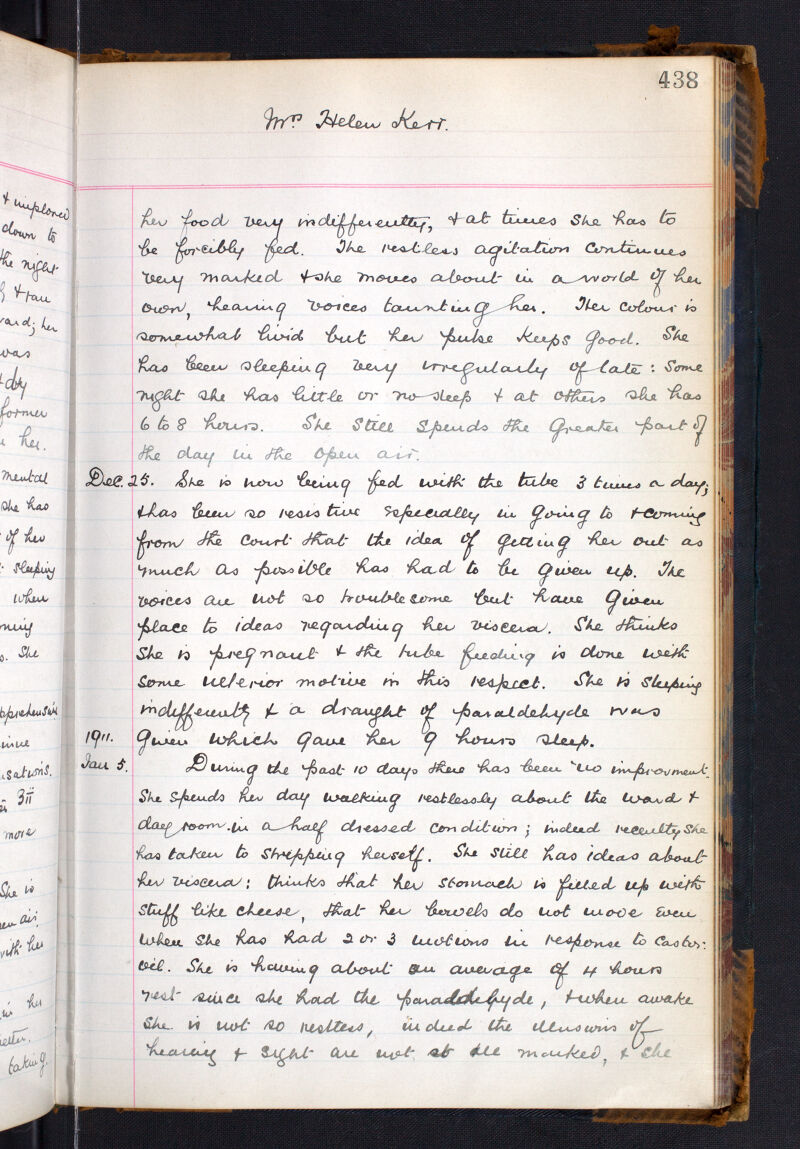 438
Mrs Helen Kerr.
her food very indifferently, & at times she has to
be forcibly fed. The restless agitation continues
very marked & she moves about in a world of her
own, hearing voices taunting her. Her colour is
somewhat livid but her pulse keeps good. She
has been sleeping very irregularly of late: some
night she has little or no sleep & at others she has
6 to 8 hours. She still spends the greater part of
the day in the open air.
Dec. 25. She is now being fed with the tube 3 times a day;
& has been so resistive especially in going to & coming
from the court that the idea of getting her out as
much as possible has had to be given up. The
voices are not so troublesome but have given
place to ideas regarding her viscera. She thinks
she is pregnant & the tube feeding is done with
some ulterior motive in this respect. She is sleeping
indifferently & a draught of paraldehyde was
1911. given which gave her 9 hours sleep.
Jan 5. During the past 10 days there has been no improvment.
She spends her day walking restlessly about the ward &
day room in a half dressed condition; indeed recently she
has taken to stripping herself. She still has ideas about
her viscera: thinks that her stomach is filled up with
stuff like cheese, that her bowels do not move even
when she has had 2 or 3 motions in response to castor:
oil. She is having about an average of 4 hours
rest since she had the paraldehyde, & when awake
she is not so restless, indeed the illusions of
hearing & sight are not at all marked, & she
& implored
down to
the night
& ran
ward; her
was
former
her.
mental
she has
of her
sleeping
when
She
3ii
more
She is
air
with her
in her
taking